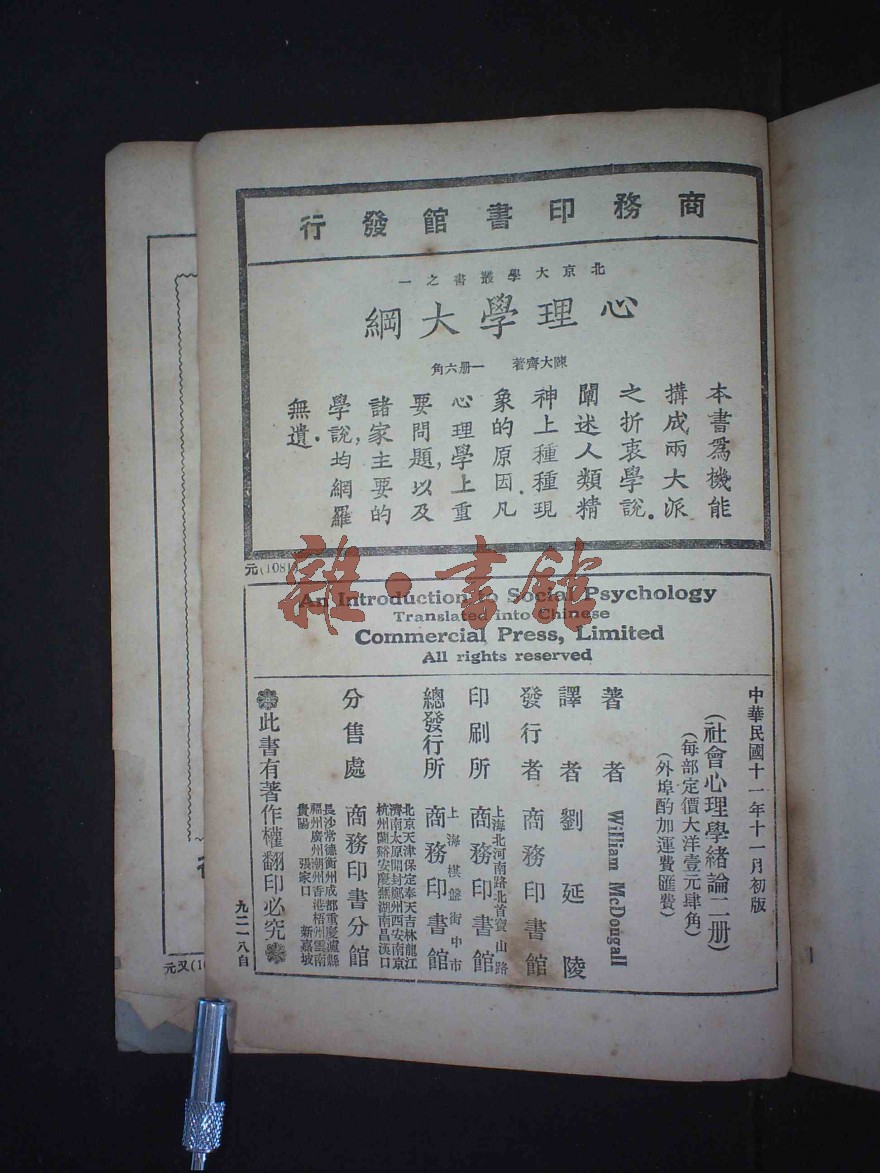 商務印書館發行
北京大學叢書之一
心理學大綱
陳大齊著 一册六角
本書爲機能
搆成兩大派
之折衷學說。
闡迷人類精
神上種種現
象的原因.凡
心理學上重
要問題,以及
諸家主要的
學說,均網羅
無遺.
元(1081)
雜·書館
An Introduction to Social Psychology
Translated into Chinese
Commercial Press, Limited
All rights reserved
中華民國十一年十一月初版
(社會心理學緒論二册)
(每部定價大洋壹元肆角)
(外埠酌加運費匯費)
著者 William McDougall
譯者 劉延陵
發行者 商務印書館
上海北河南路北首寶山路
印刷所 商務印書館
上海棋盤街中市
總發行所 商務印書館
北京天津保定奉天吉林龍江
濟南太原開封鄭州西安南京
杭州蘭谿安慶蕪湖南昌漢口
分售處 商務印書分館
長沙常德衡州成都重慶瀘縣
福州廣州潮州香港梧州雲南
貴陽 張家口 新嘉坡
此書有著作權翻印必究
九二一八自
元又(10